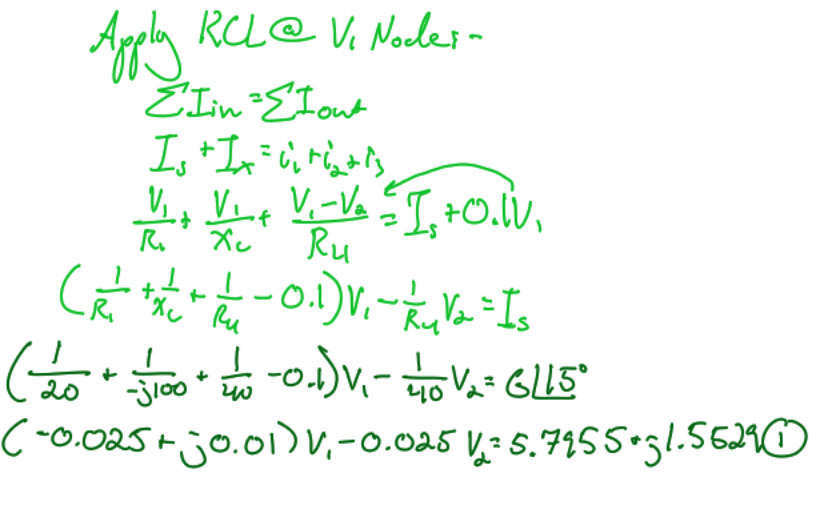 Apply KCL @ V₁ Node:-
ΣIin = ΣIout
Is + Ix = i₁ + i₂ + i₃
V₁/R₁ + V₁/Xc + (V₁-V₂)/R4 = Is + 0.1V₁
(1/R₁ + 1/Xc + 1/R4 - 0.1)V₁ - 1/R4 V₂ = Is
(1/20 + 1/-j100 + 1/40 - 0.1)V₁ - 1/40 V₂ = 6∠15°
(-0.025 + j0.01)V₁ - 0.025 V₂ = 5.7955 + j1.5529 ①